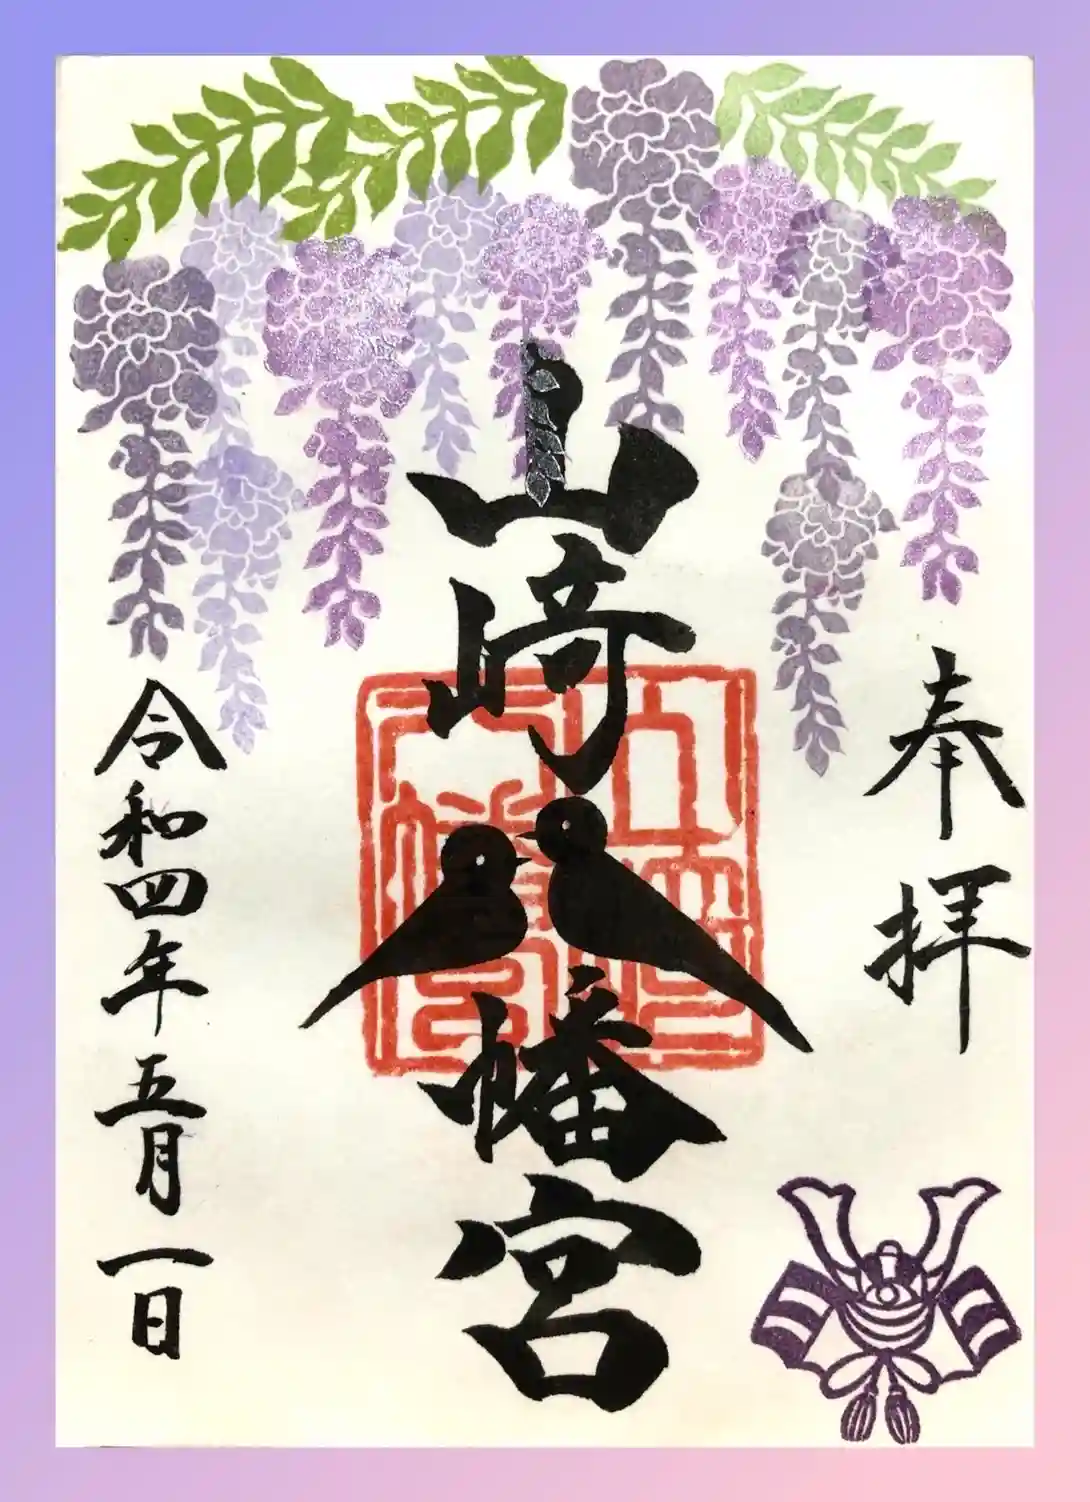 奉拝
山崎八幡宮
令和四年五月一日